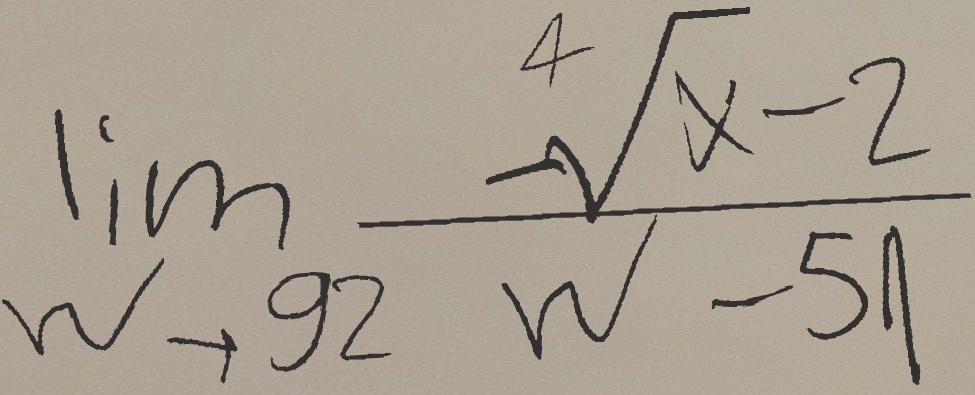 \lim_{w \to 92} \frac{\sqrt[4]{x} - 2}{w - 51}